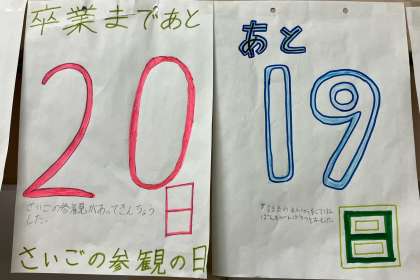 卒業まであと
20
日
さいごの参観があってきんちょう
した。
さいごの参観の日
あと
19
日